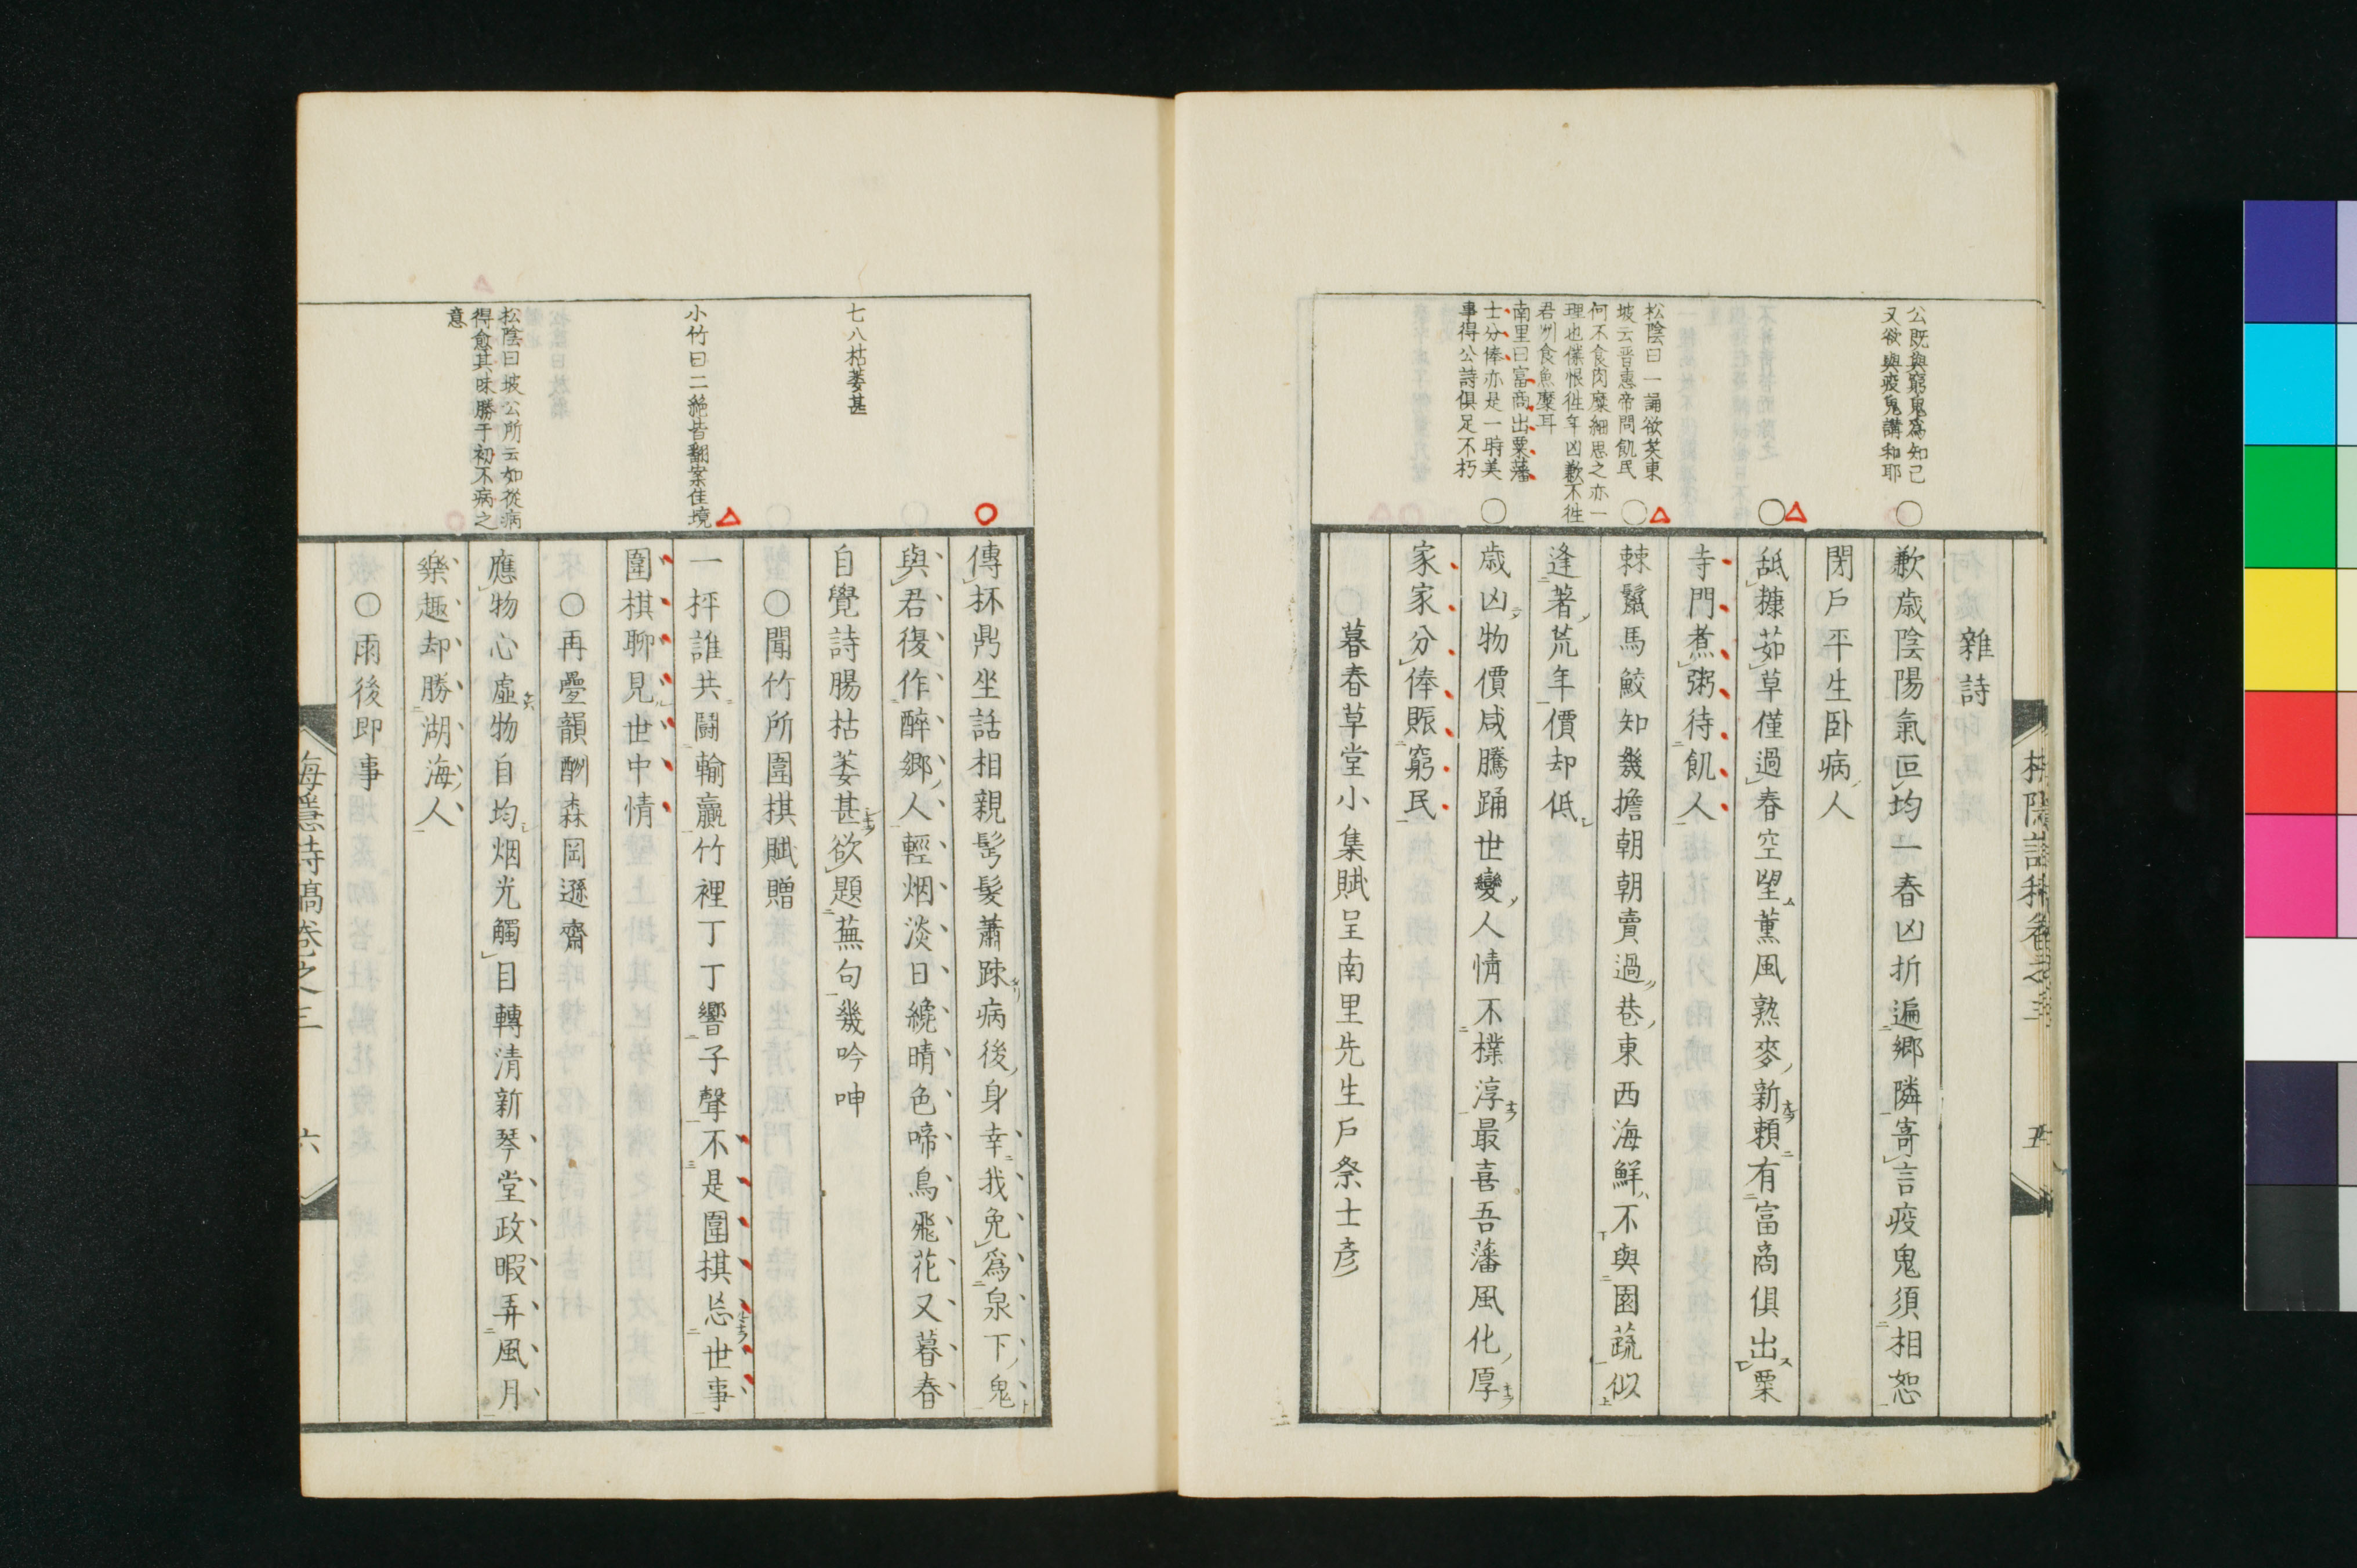 公既與窮鬼爲知己
又欲與疫鬼講和耶
松陰曰一誦欲笑東
坡云晋惠帝問飢民
何不食肉糜細思之亦一
理也僕恨徃年凶歉不徃
君州食魚糜耳
南里曰富商出粟藩
士分俸亦是一時美
事得公詩俱足不朽
雜詩
歉歳陰陽氣叵均一春凶折遍郷隣寄言疫鬼須相恕
閉戸平生卧病人
舐糠茹草僅過春空望薫風熟麥新頼有富商倶出粟
寺門煮粥待飢人
棘鬣馬鮫知幾擔朝朝賣過巷東西海鮮不與園蔬似
逢著荒年價却低
歳凶物價咸騰踊世變人情不樸淳最喜吾藩風化厚
家家分俸賑窮民
暮春草堂小集賦呈南里先生戸祭士彦
五
七八枯萎甚
小竹曰二絶皆翻案佳境
松陰曰坡公所云如從病
得愈其味勝于初不病之
意
傳抔鼎坐話相親髩髮蕭踈病後身幸我免爲泉下鬼
與君復作醉郷人輕烟淡日纔晴色啼鳥飛花又暮春
自覺詩腸枯萎甚欲題蕪句幾吟呻
○聞竹所圍棋賦贈
一枰誰共鬪輸贏竹裡丁丁響子聲不是圍棋忘世事
圍棋聊見世中情
○再疊韻酬森岡遜齋
應物心虛物自均烟光觸目轉清新琴堂政暇弄風月
樂趣却勝湖海人
○雨後即事
梅隱詩稿卷之三
六